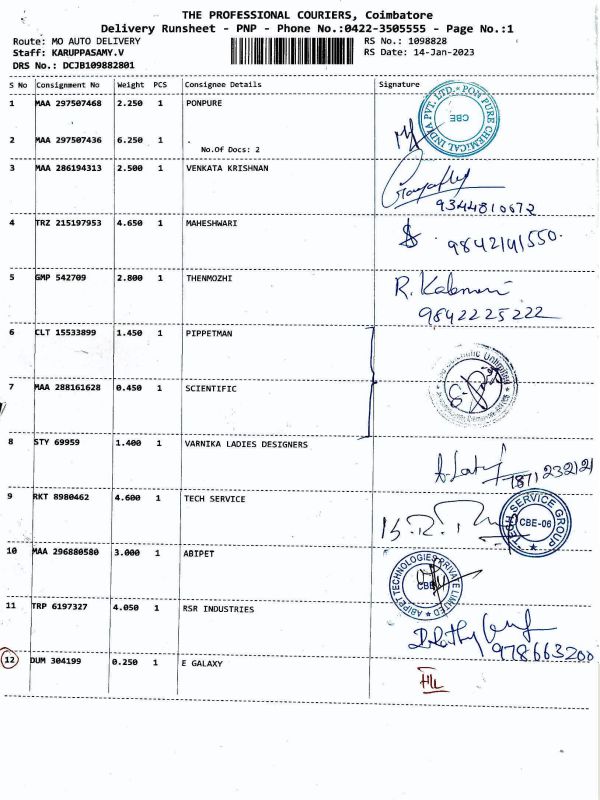 THE PROFESSIONAL COURIERS, Coimbatore
Delivery Runsheet - PNP - Phone No.:0422-3505555 - Page No.:1
Route: MO AUTO DELIVERY RS No.: 1098828
Staff: KARUPPASAMY.V RS Date: 14-Jan-2023
DRS No.: DCJB109882801
S No Consignment No Weight PCS Consignee Details Signature
1 MAA 297507468 2.250 1 PONPURE
PON PURE CHEMICAL INDIA PVT. LTD. CBE
2 MAA 297507436 6.250 1 .
No.Of Docs: 2
3 MAA 286194313 2.500 1 VENKATA KRISHNAN
9344810672
4 TRZ 215197953 4.650 1 MAHESHWARI
9842141550.
5 GMP 542709 2.800 1 THENMOZHI
R.
9842225222
6 CLT 15533899 1.450 1 PIPPETMAN
Unlimited
7 MAA 288161628 0.450 1 SCIENTIFIC
8 STY 69959 1.400 1 VARNIKA LADIES DESIGNERS
9 RKT 8980462 4.600 1 TECH SERVICE
TECH SERVICE GROUP CBE-06
10 MAA 296880580 3.000 1 ABIPET
ABIPET TECHNOLOGIES PRIVATE LIMITED CBE
11 TRP 6197327 4.050 1 RSR INDUSTRIES
978663200
12 DUM 304199 0.250 1 E GALAXY